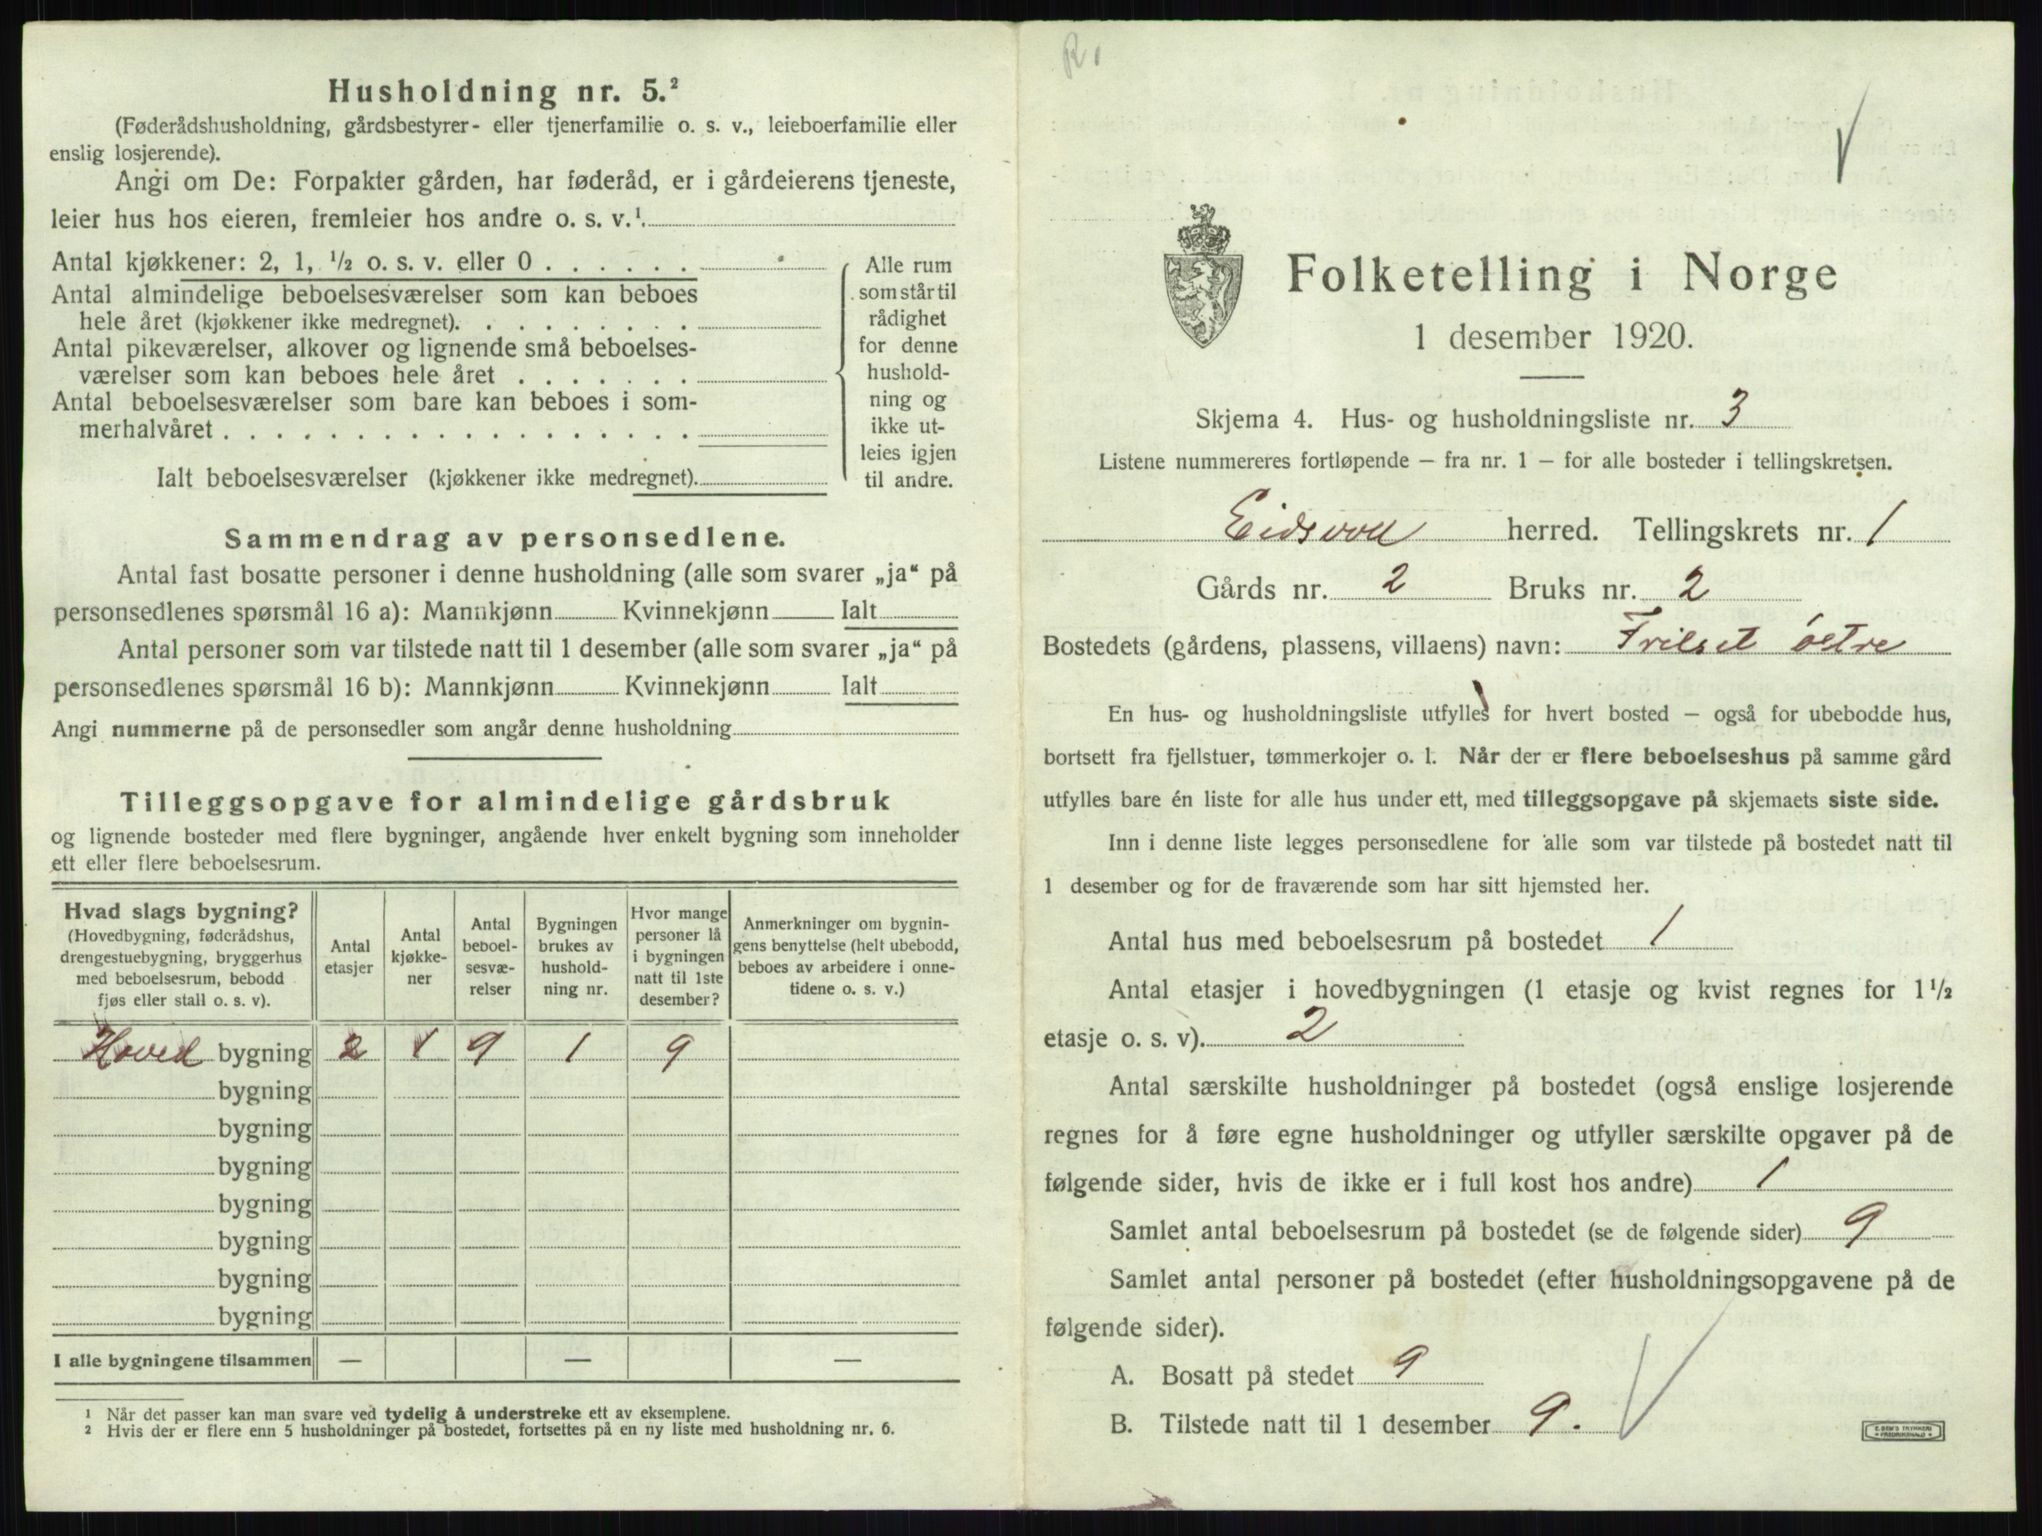 Husholdning nr. 5.²
(Føderådshusholdning, gårdsbestyrer- eller tjenerfamilie o. s. v., leieboerfamilie eller
enslig losjerende).
Angi om De: Forpakter gården, har føderåd, er i gårdeierens tjeneste,
leier hus hos eieren, fremleier hos andre o. s. v.¹
Antal kjøkkener: 2, 1, ½ o. s. v. eller 0 . . . . . .
Antal almindelige beboelsesværelser som kan beboes
hele året (kjøkkener ikke medregnet). . . . . . . . .
Antal pikeværelser, alkover og lignende små beboelses-
værelser som kan beboes hele året . . . . . . .
Antal beboelsesværelser som bare kan beboes i som-
merhalvåret . . . . . . . . . . . . . . . . . .
Ialt beboelsesværelser (kjøkkener ikke medregnet).
Alle rum
som står til
rådighet
for denne
hushold-
ning og
ikke ut-
leies igjen
til andre.
Sammendrag av personsedlene.
Antal fast bosatte personer i denne husholdning (alle som svarer „ja“ på
personsedlenes spørsmål 16 a): Mannkjønn Kvinnekjønn Ialt
Antal personer som var tilstede natt til 1 desember (alle som svarer „ja“ på
personsedlenes spørsmål 16 b): Mannkjønn Kvinnekjønn Ialt
Angi nummerne på de personsedler som angår denne husholdning
Tilleggsopgave for almindelige gårdsbruk
og lignende bosteder med flere bygninger, angående hver enkelt bygning som inneholder
ett eller flere beboelsesrum.
Hvad slags bygning?
(Hovedbygning, føderådshus,
drengestuebygning, bryggerhus
med beboelsesrum, bebodd
fjøs eller stall o. s. v).
Antal
etasjer
Antal
kjøkke-
ner
Antal
beboel-
sesvæ-
relser
Bygningen
brukes av
hushold-
ning nr.
Hvor mange
personer lå
i bygningen
natt til 1ste
desember?
Anmerkninger om bygnin-
gens benyttelse (helt ubebodd,
beboes av arbeidere i onne-
tidene o. s. v.)
Hoved bygning 2 1 9 1 9
bygning
bygning
bygning
bygning
bygning
bygning
bygning
I alle bygningene tilsammen — — —
¹ Når det passer kan man svare ved tydelig å understreke ett av eksemplene.
² Hvis der er flere enn 5 husholdninger på bostedet, fortsettes på en ny liste med husholdning nr. 6.
R.
Folketelling i Norge
1 desember 1920.
Skjema 4. Hus- og husholdningsliste nr. 3
Listene nummereres fortløpende – fra nr. 1 – for alle bosteder i tellingskretsen.
Eidsvoll herred. Tellingskrets nr. 1
Gårds nr. 2 Bruks nr. 2
Bostedets (gårdens, plassens, villaens) navn: Frilset østre
En hus- og husholdningsliste utfylles for hvert bosted – også for ubebodde hus,
bortsett fra fjellstuer, tømmerkojer o. l. Når der er flere beboelseshus på samme gård
utfylles bare én liste for alle hus under ett, med tilleggsopgave på skjemaets siste side.
Inn i denne liste legges personsedlene for alle som var tilstede på bostedet natt til
1 desember og for de fraværende som har sitt hjemsted her.
Antal hus med beboelsesrum på bostedet 1
Antal etasjer i hovedbygningen (1 etasje og kvist regnes for 1½
etasje o. s. v). 2
Antal særskilte husholdninger på bostedet (også enslige losjerende
regnes for å føre egne husholdninger og utfyller særskilte opgaver på de
følgende sider, hvis de ikke er i full kost hos andre) 1
Samlet antal beboelsesrum på bostedet (se de følgende sider) 9
Samlet antal personer på bostedet (efter husholdningsopgavene på de
følgende sider).
A. Bosatt på stedet 9
B. Tilstede natt til 1 desember 9.